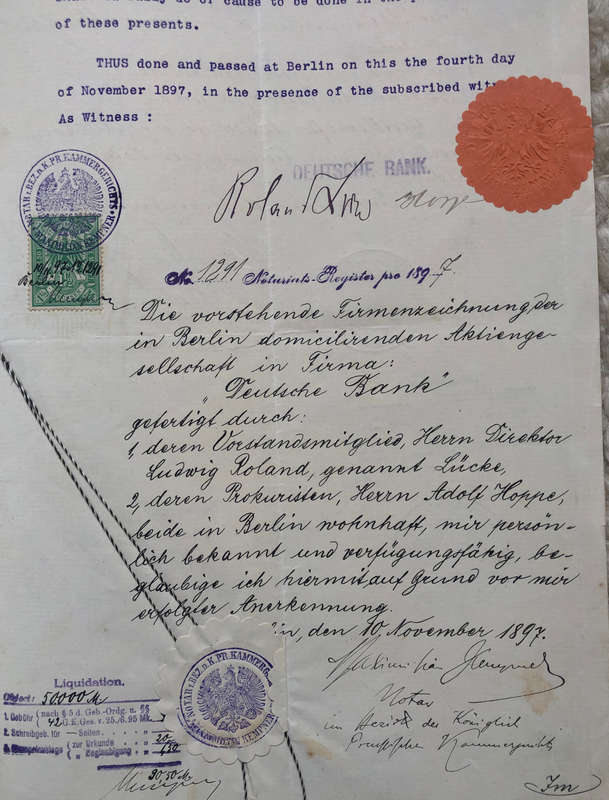 of these presents.
THUS done and passed at Berlin on this the fourth day
of November 1897, in the presence of the subscribed
As Witness :
DEUTSCHE BANK.
Hoppe
No. 1291 Notariats-Register pro 1897.
Berlin
Die vorstehende Firmenzeichnung der
in Berlin domicilirenden Aktienge-
sellschaft in Firma:
„Deutsche Bank"
gefertigt durch:
1, deren Vorstandsmitglied, Herrn Direktor
Ludwig Roland, genannt Lücke,
2, deren Prokuristen, Herrn Adolf Hoppe,
beide in Berlin wohnhaft, mir persön-
lich bekannt und verfügungsfähig, be-
glaubige ich hiermit auf Grund vor mir
erfolgter Anerkennung.
den 10. November 1897.
Maximilian Kempner
Notar
im Bezirk der Königlich
Preußischen Kammergerichts
Liquidation.
Object: 50000 M
1. Gebühr nach § 5 d. Geb.-Ordg. u. §§
42 G.K.Ges. v. 25./6. 95 Mk.
2. Schreibgeb. für Seiten
zur Urkunde